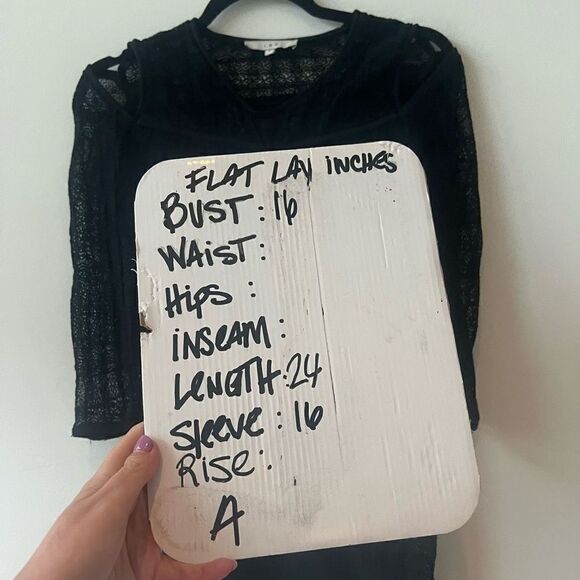 FLAT LAY INCHES
BUST: 16
WAIST:
Hips :
INSEAM:
LENGTH: 24
Sleeve: 16
Rise:
A